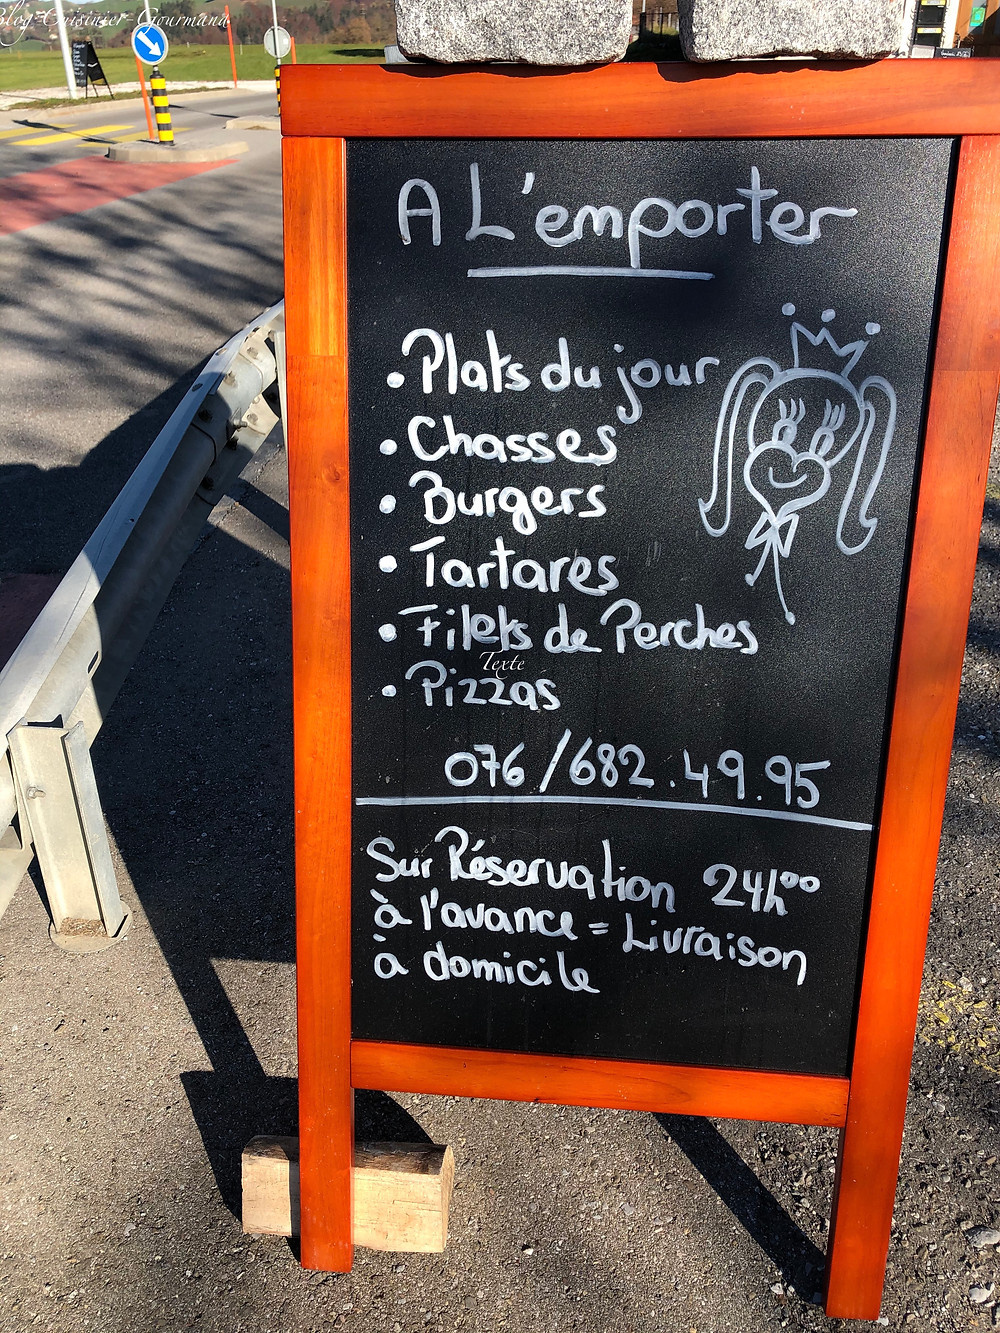 Blog Cuisinier Gourmand
A L'emporter
• Plats du jour
• Chasses
• Burgers
• Tartares
• Filets de Perches
Texte
• Pizzas
076/682.49.95
Sur Réservation 24h°°
à l'avance = Livraison
à domicile